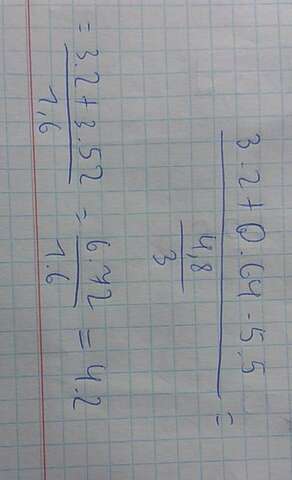 3.2+0.64·5.5 =
4,8
3
= 3.2+3.52 = 6.72 = 4.2
1,6 1.6